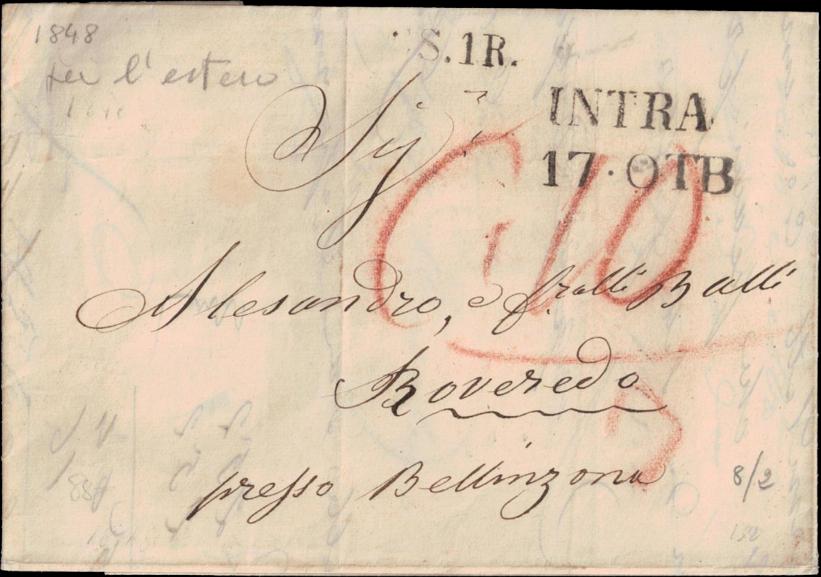 1848
per l'estero
S.1R.
INTRA
17·OTB
Sigri
10
Alesandro, e fratelli Balli
Roveredo
presso Bellinzona
8/2